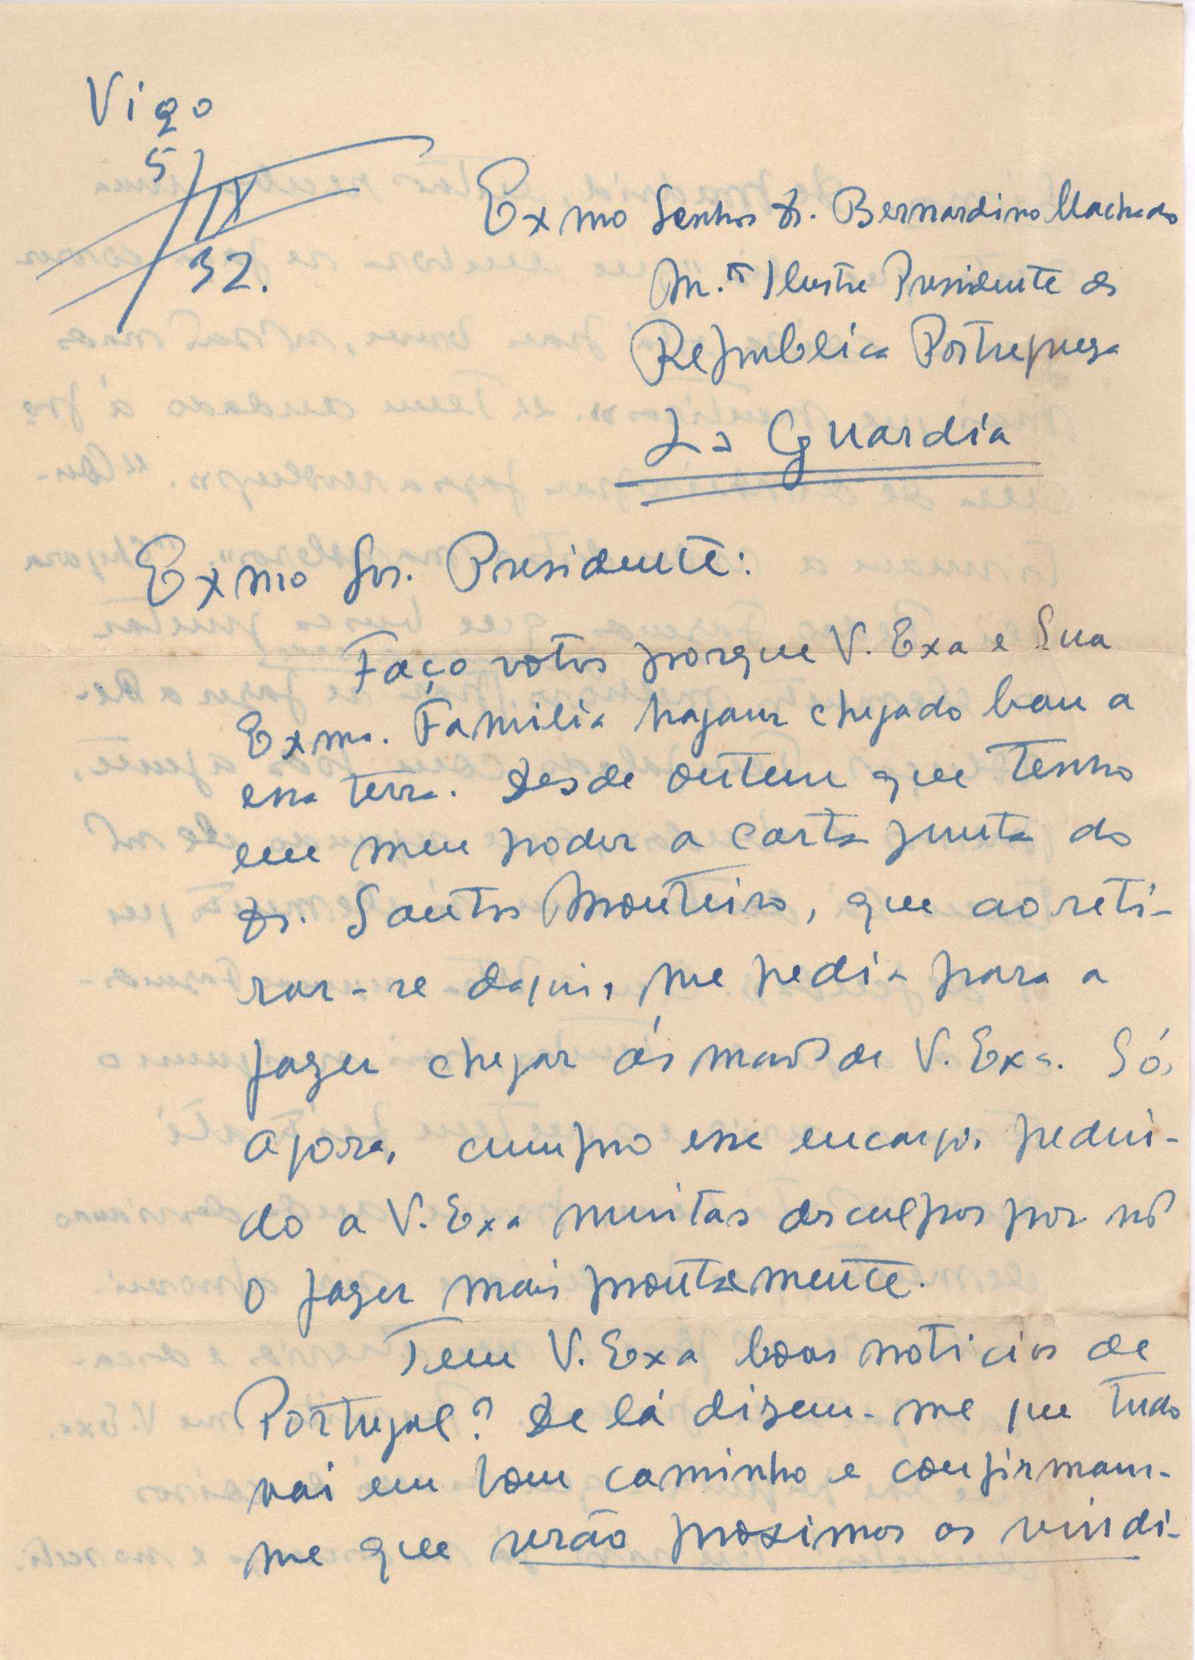 Vigo
5/IX
32.
Exmo Senhor Dr. Bernardino Machado
M.to Ilustre Presidente da
Republica Portugueza
La Guardia
Exmo Snr. Presidente:
Faço votos porque V. Exa e Sua
Exma. Familia hajam chegado bem a
essa terra. Desde ontem que tenho
em meu poder a carta junta do
Dr. Santos Monteiro, que ao reti-
rar-se daqui, me pedia para a
fazer chegar ás mãos de V. Exa. Só,
agora, cumpro esse encargo, pedin-
do a V. Exa muitas desculpas por nõ
o fazer mais prontamente.
Tem V. Exa boas noticias de
Portugal? De lá dizem-me que tudo
vai em bom caminho e confirmam-
me que serão proximos os